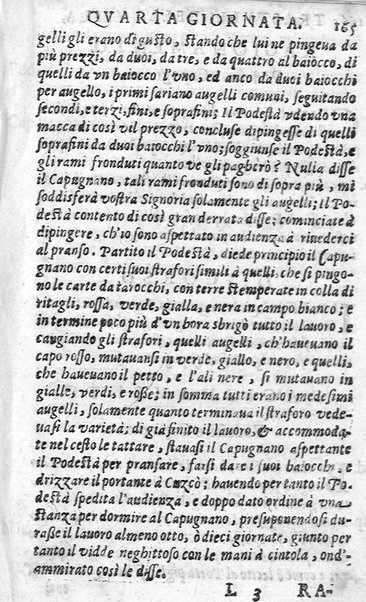 QVARTA GIORNATA. 165
gelli gli erano di gusto, stando che lui ne pingeua da
più prezzi, da duoi, da tre, e da quattro al baiocco, di
quelli da vn baiocco l'vno, ed anco da duoi baiocchi
per augello, i primi sariano augelli comuni, seguitando
secondi, e terzi, fini, e soprafini; Il Podestà vdendo vna
macca di così vil prezzo, concluse dipingesse di quelle
soprafini da duoi baiocchi l'vno; soggiunse il Podestà, e
gli rami fronduti quanto ve gli pagherò? Nulla disse
il Capugnano, tali rami fronduti sono di sopra più, mi
soddisferà vostra Signoria solamente gli augelli; Il Po-
destà contento di così gran derrata disse: cominciate à
dipingere, ch'io sono aspettato in audienza à riuederci
al pranso. Partito il Podestà, diede principio il Capu-
gnano con certi suoi strafori simili à quelli, che si pingo-
no le carte da tarocchi, con terre stemperate in colla di
ritagli, rossa, verde, gialla, e nera in campo bianco; e
in termine poco più d'vn hora sbrigò tutto il lauoro, e
cangiando gli straforì, quelli augelli, ch'haueuano il
capo rosso, mutauansi in verde, giallo, e nero, e quelli,
che haueuano il petto, e l'ali nere, si mutauano in
gialle, verdi, e rosse; in somma tutti erano i medesimi
augelli, solamente quanto terminaua il straforo vede-
uasi la varietà; di già finito il lauoro, & accommoda-
te nel cesto le tattare, stauasi il Capugnano aspettante
il Podestà per pransare, farsi dare i suoi baiocchi, e
drizzare il portante à Cazcò; hauendo per tanto il Po-
destà spedita l'audienza, e doppo dato ordine à vna
stanza per dormire al Capugnano, presuponendosi du-
rasse il lauoro almeno otto, ò dieci giornate, giunto per
tanto il vidde neghittoso con le mani à cintola, ond'
ammirato così le disse.
L 3 RA-